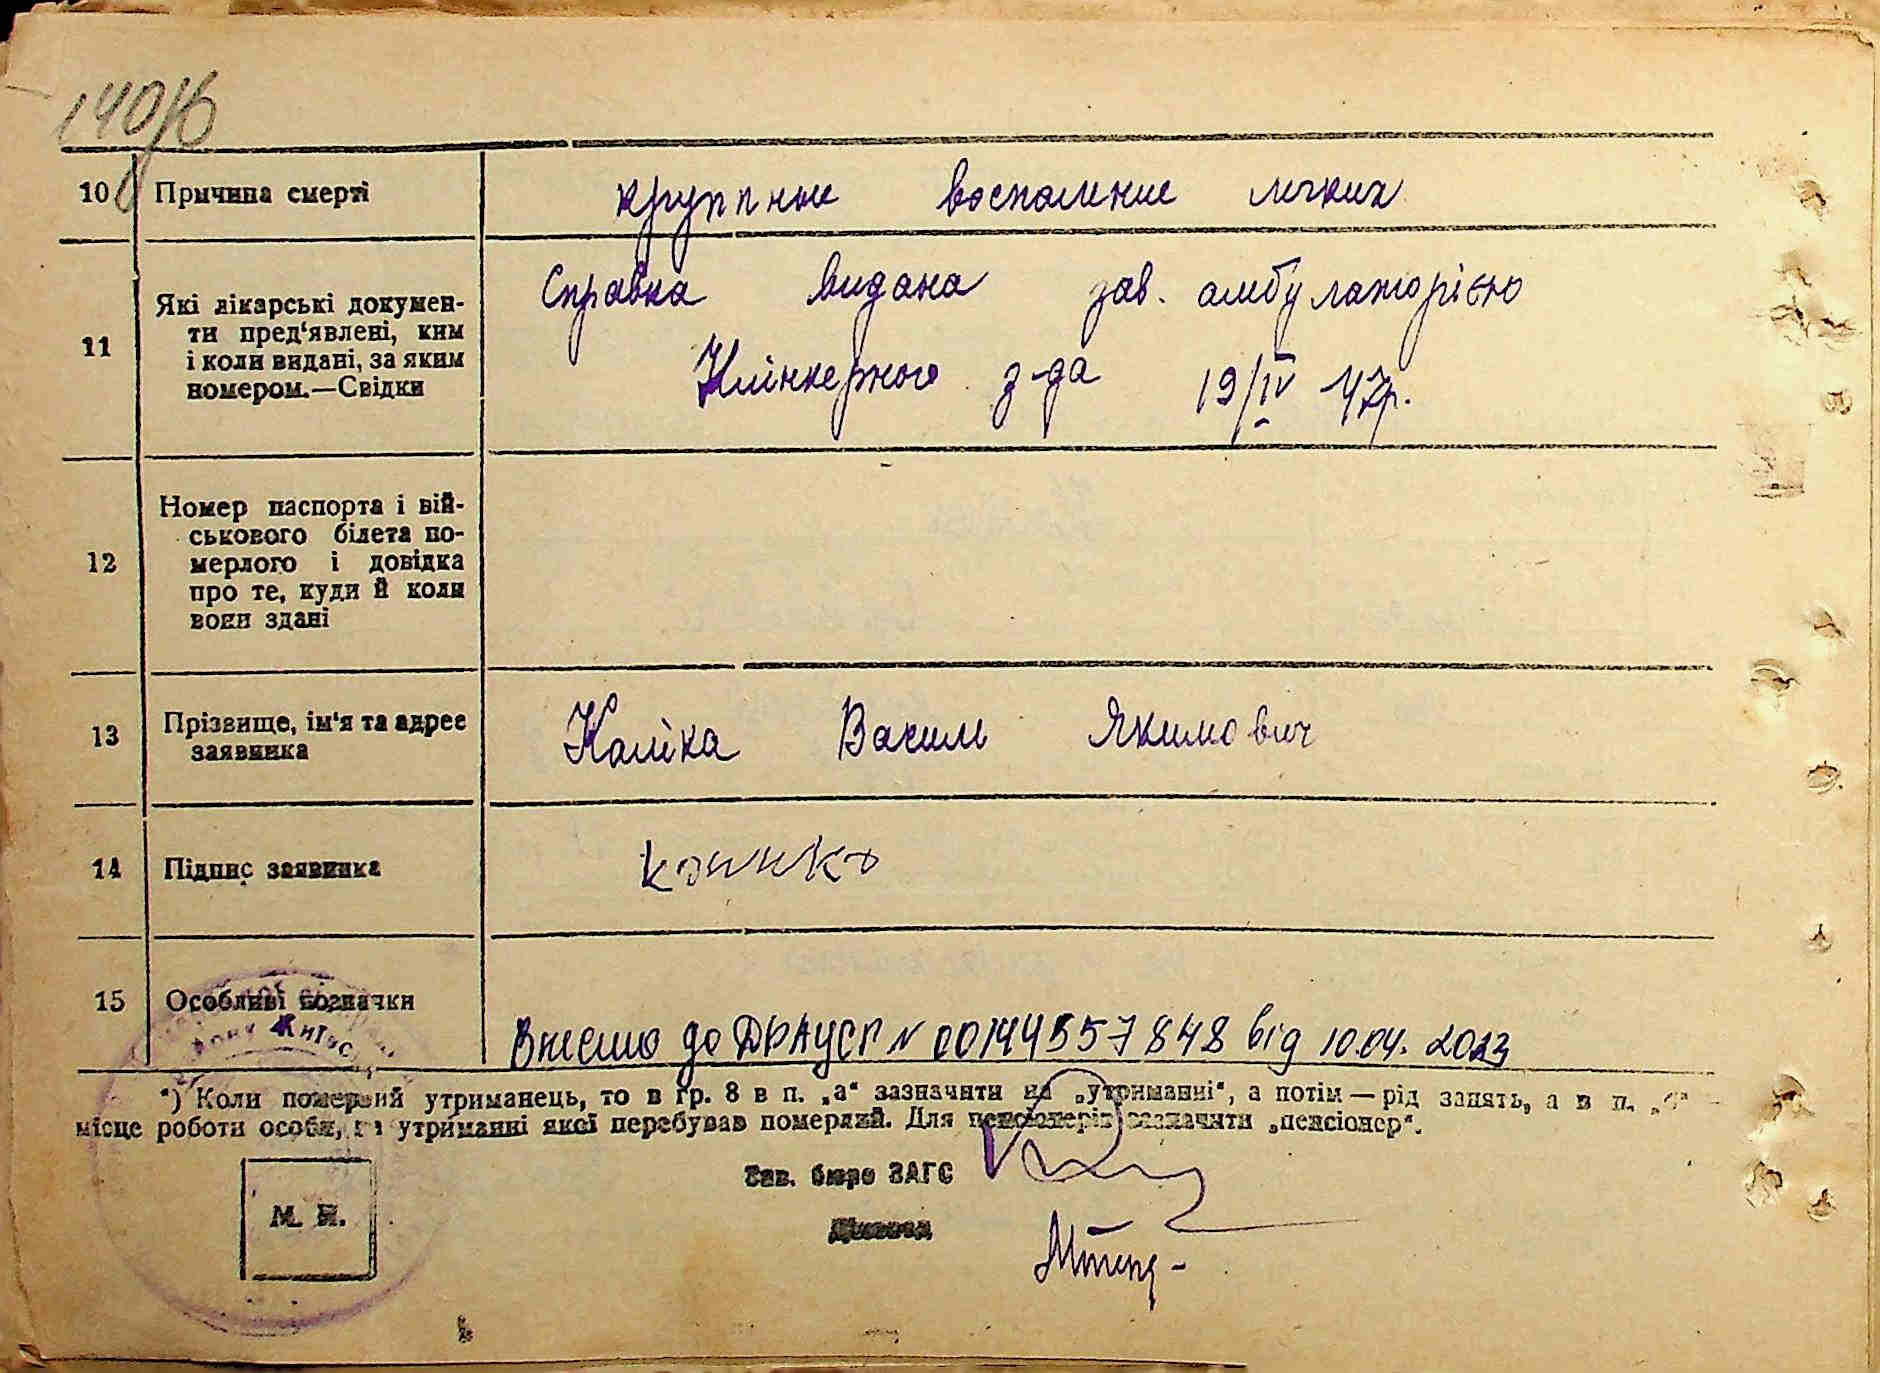 10 Причина смерті круппное воспаление легких
11 Які лікарські докумен-
ти пред'явлені, ким
і коли видані, за яким
номером.—Свідки
Справка видана зав. амбулаторією
Клінкерного з-да 19/IV 47р.
12 Номер паспорта і вій-
ськового білета по-
мерлого і довідка
про те, куди й коли
вони здані
13 Прізвище, ім'я та адрес
заявника
Каліка Василь Якимович
14 Підпис заявника
15 Особливі позначки
Внесено до ДРАЦСГ N 00144557848 від 10.04.2023
*) Коли померлий утриманець, то в гр. 8 в п. „а“ зазначити на „утриманні“, а потім — рід занять, а в п.
місце роботи особи, на утриманні якої перебував померлий. Для пенсіонерів зазначити „пенсіонер“.
Зав. бюро ЗАГС
М. П.
Діловод